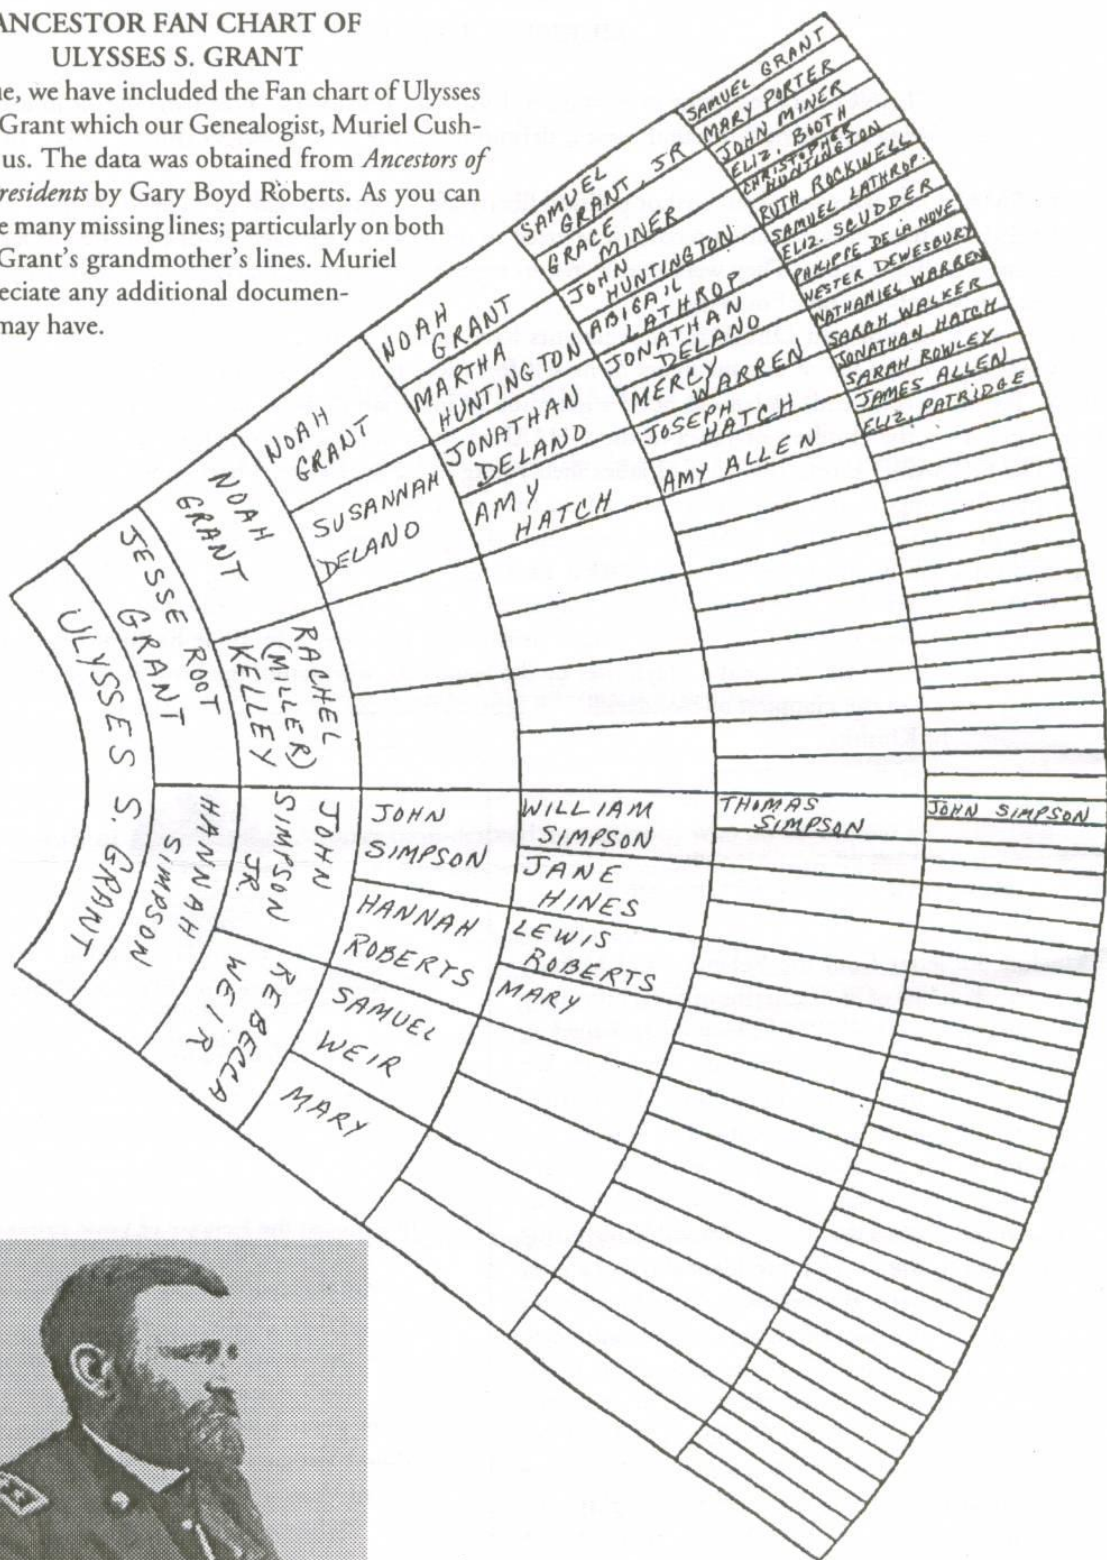 ANCESTOR FAN CHART OF
ULYSSES S. GRANT
we have included the Fan chart of Ulysses
Grant which our Genealogist, Muriel Cush-
us. The data was obtained from Ancestors of
by Gary Boyd Roberts. As you can
many missing lines; particularly on both
Grant's grandmother's lines. Muriel
any additional documen-
may have.
ULYSSES S. GRANT
JESSE ROOT
GRANT
HANNAH
SIMPSON
NOAH
GRANT
RACHEL
(MILLER)
KELLEY
JOHN
SIMPSON
JR.
REBECCA
WEIR
NOAH
GRANT
SUSANNAH
DELANO
JOHN
SIMPSON
HANNAH
ROBERTS
SAMUEL
WEIR
MARY
NOAH
GRANT
MARTHA
HUNTINGTON
JONATHAN
DELANO
AMY
HATCH
WILLIAM
SIMPSON
JANE
HINES
LEWIS
ROBERTS
MARY
SAMUEL
GRANT, JR
GRACE
MINER
JOHN
HUNTINGTON
ABIGAIL
LATHROP
JONATHAN
DELANO
MERCY
WARREN
JOSEPH
HATCH
AMY ALLEN
THOMAS
SIMPSON
SAMUEL GRANT
MARY PORTER
JOHN MINER
ELIZ. BOOTH
CHRISTOPHER
HUNTINGTON
RUTH ROCKWELL
SAMUEL LATHROP.
ELIZ. SCUDDER
PHILIPPE DE LA NOYE
HESTER DEWESBURY
NATHANIEL WARREN
SARAH WALKER
JONATHAN HATCH
SARAH ROWLEY
JAMES ALLEN
ELIZ. PATRIDGE
JOHN SIMPSON